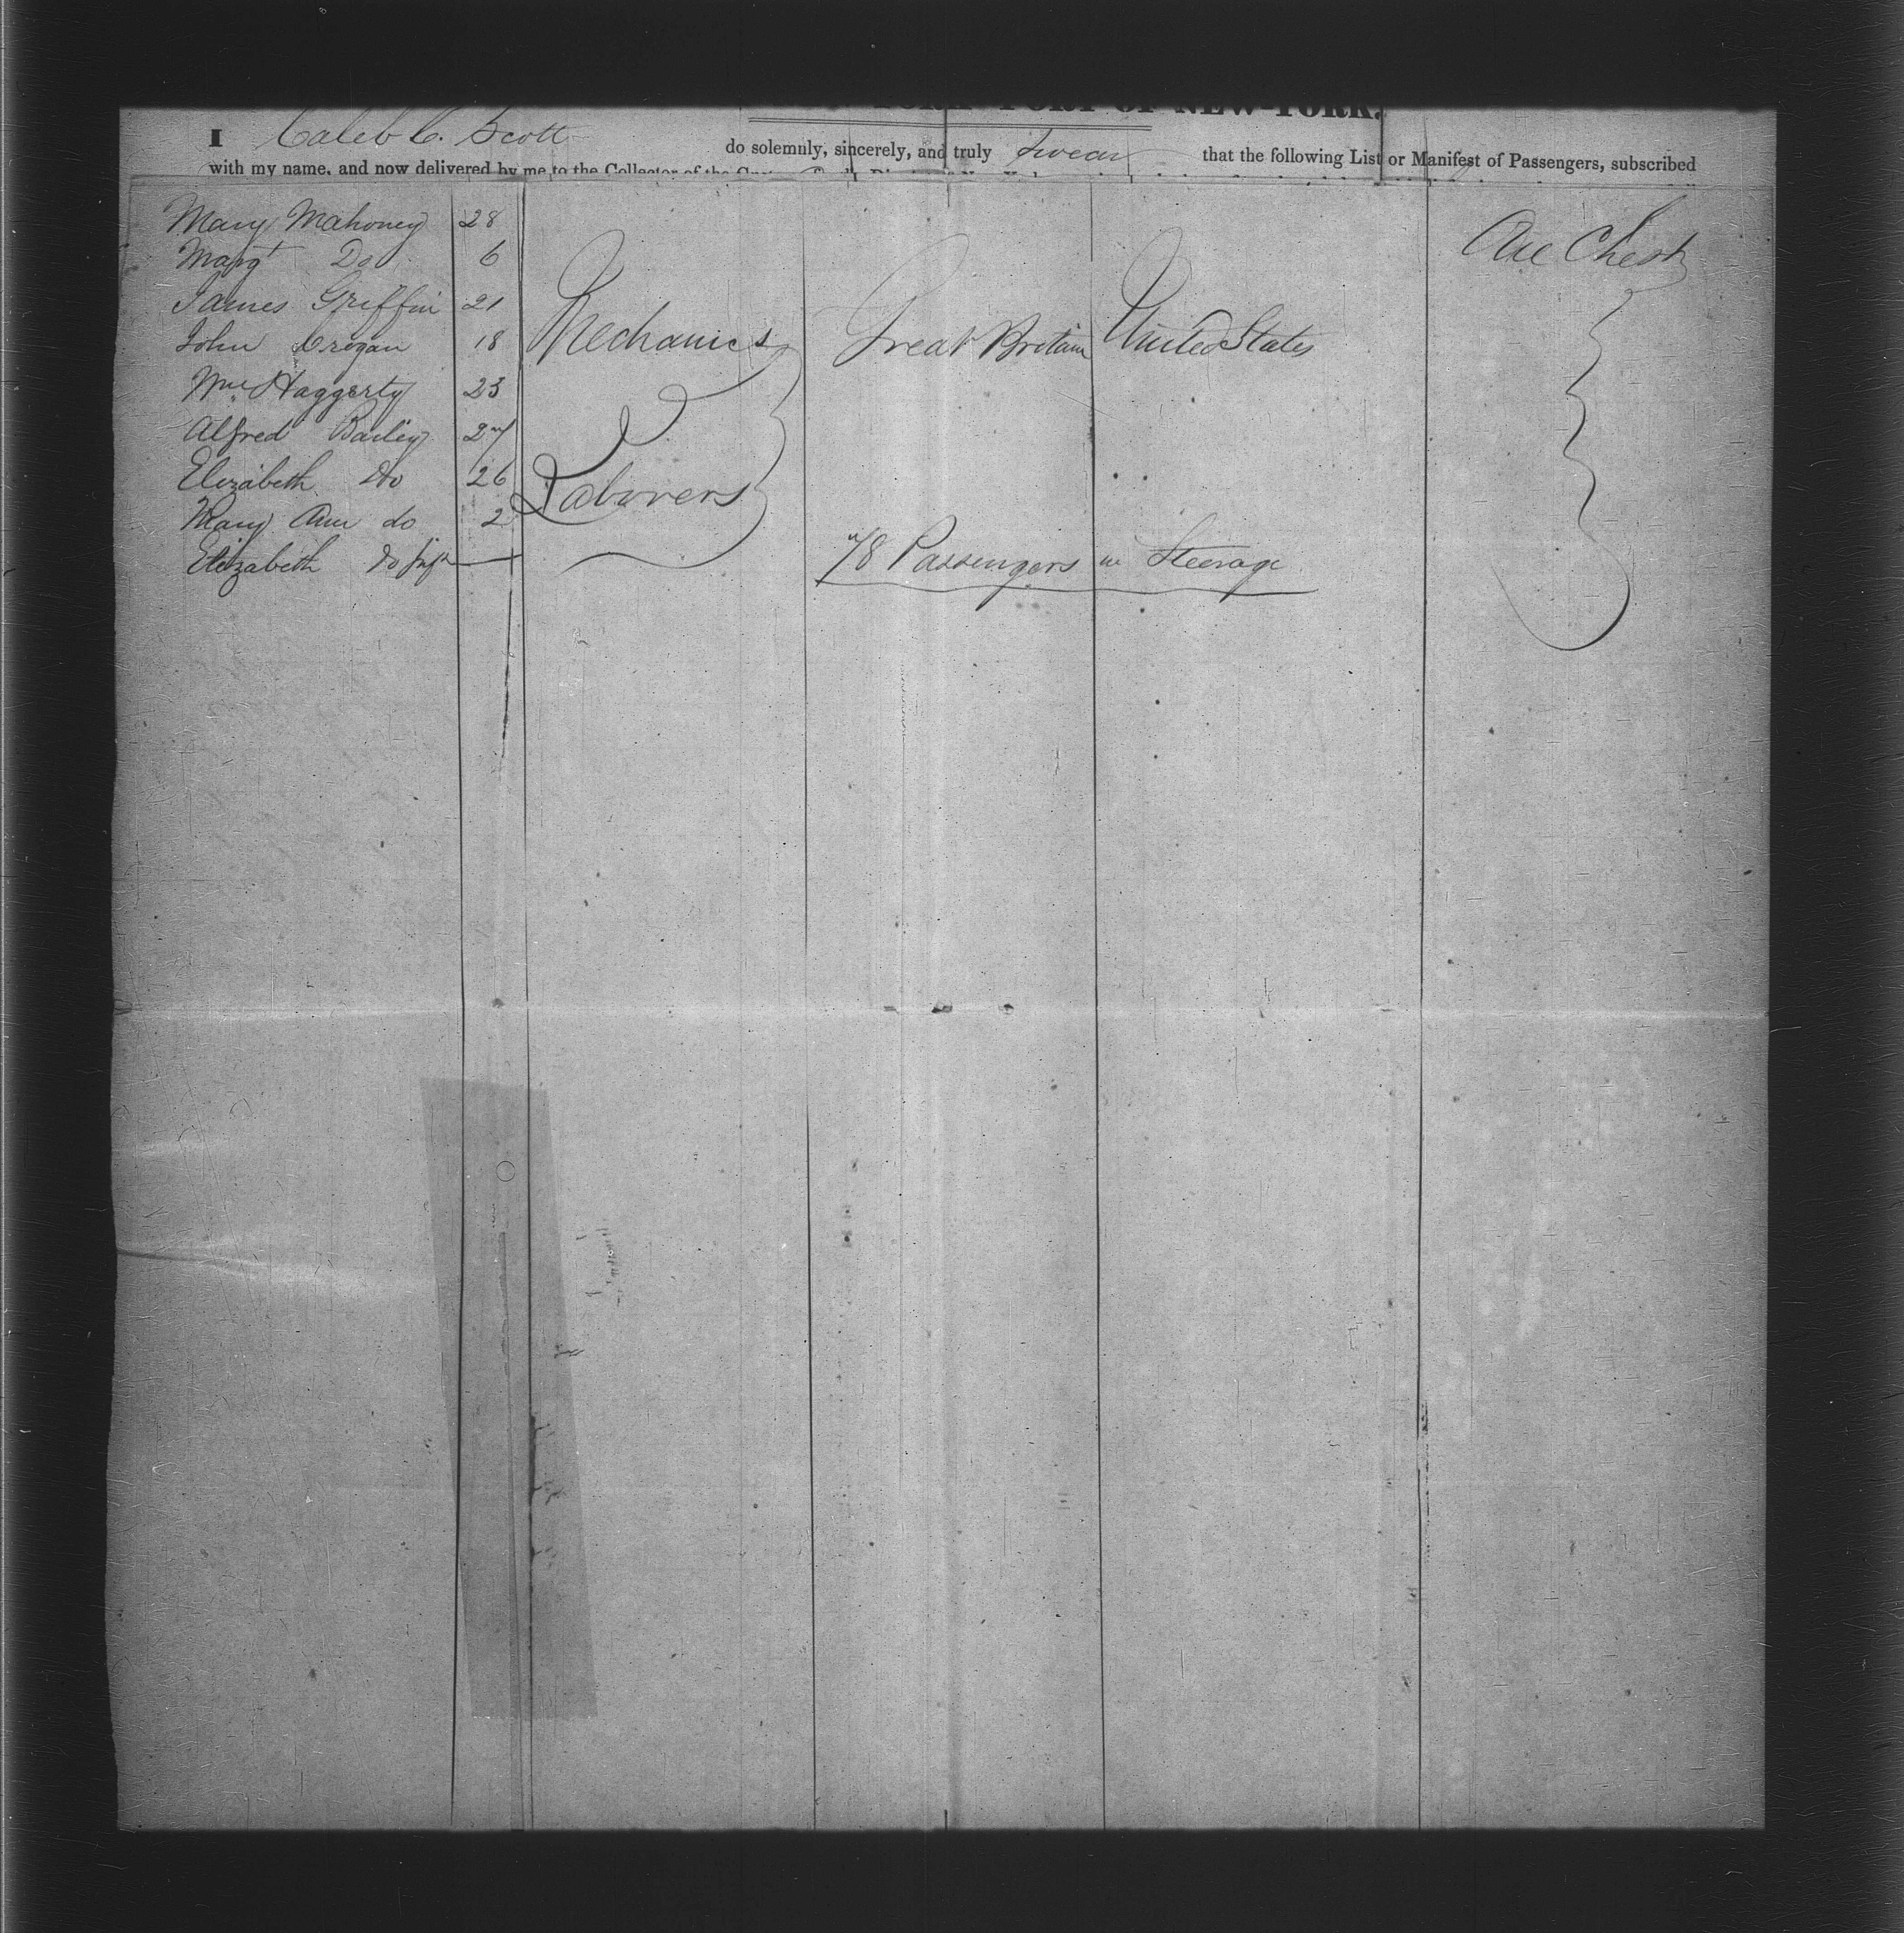 PORT OF NEW-YORK.
I Caleb C. Scott do solemnly, sincerely, and truly swear that the following List or Manifest of Passengers, subscribed
with my name, and now delivered by me to the Collector of the
Mary Mahoney 28
Margt Do 6
James Griffin 21
John Crogan 18
Wm. Haggerty 23
Alfred Bailey 27
Elizabeth Do 26
Mary Ann do 2
Elizabeth do
Mechanics
Laborers
Great Britain
United States
One Chest
78 Passengers in Steerage